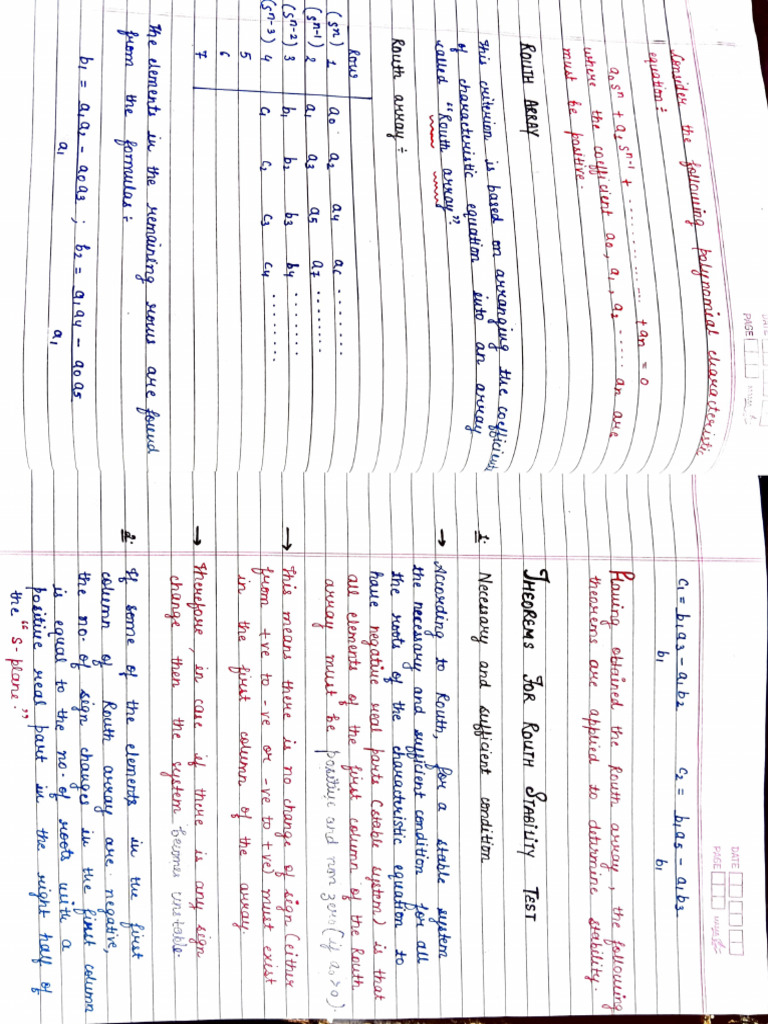 DATE
PAGE
Consider the following polynomical characteristic
equation ÷
a₀sⁿ + a₁ sⁿ⁻¹ + .............. + aₙ = 0
where the coefficient a₀, a₁, a₂ ...... an are
must be positive.
ROUTH ARRAY
This criterion is based on arranging the coefficient
of characteristic equation into an array
called "Routh array".
Routh array ÷
Rows
(sⁿ) 1 a₀ a₂ a₄ a₆ ........
(sⁿ⁻¹) 2 a₁ a₃ a₅ a₇ ........
(sⁿ⁻²) 3 b₁ b₂ b₃ b₄ ........
(sⁿ⁻³) 4 c₁ c₂ c₃ c₄ ........
5
6
7
The elements in the remaining rows are found
from the formulas ÷
b₁ = a₁a₂ - a₀a₃ ; b₂ = a₁a₄ - a₀a₅
a₁ a₁
DATE
PAGE
c₁ = b₁a₃ - a₁b₂ c₂ = b₁a₅ - a₁b₃
b₁ b₁
Having obtained the Routh array, the following
theorems are applied to determine stability.
THEOREMS FOR ROUTH STABILITY TEST
1. Necessary and sufficient condition
→ According to Routh, for a stable system
the necessary and sufficient condition for all
the roots of the characteristic equation to
have negative real parts (stable system) is that
all elements of the first column of the Routh
array must be positive and non zero (if a₀>0).
→ This means there is no change of sign (either
from +ve to -ve or -ve to +ve) must exist
in the first column of the array.
→ Therefore, in case if there is any sign
change then the system becomes unstable.
2. If some of the elements in the first
column of Routh array are negative,
the no. of sign changes in the first column
is equal to the no. of roots with a
positive real part in the right half of
the "s-plane."